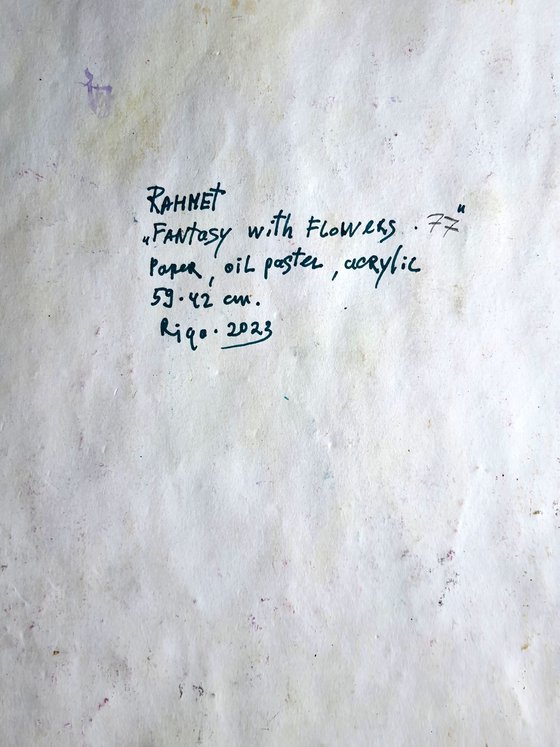 RAHMET
„FANTasy with FLOWERS . 77"
Paper, oil pastel, acrylic
59.42 cm.
Riga. 2023